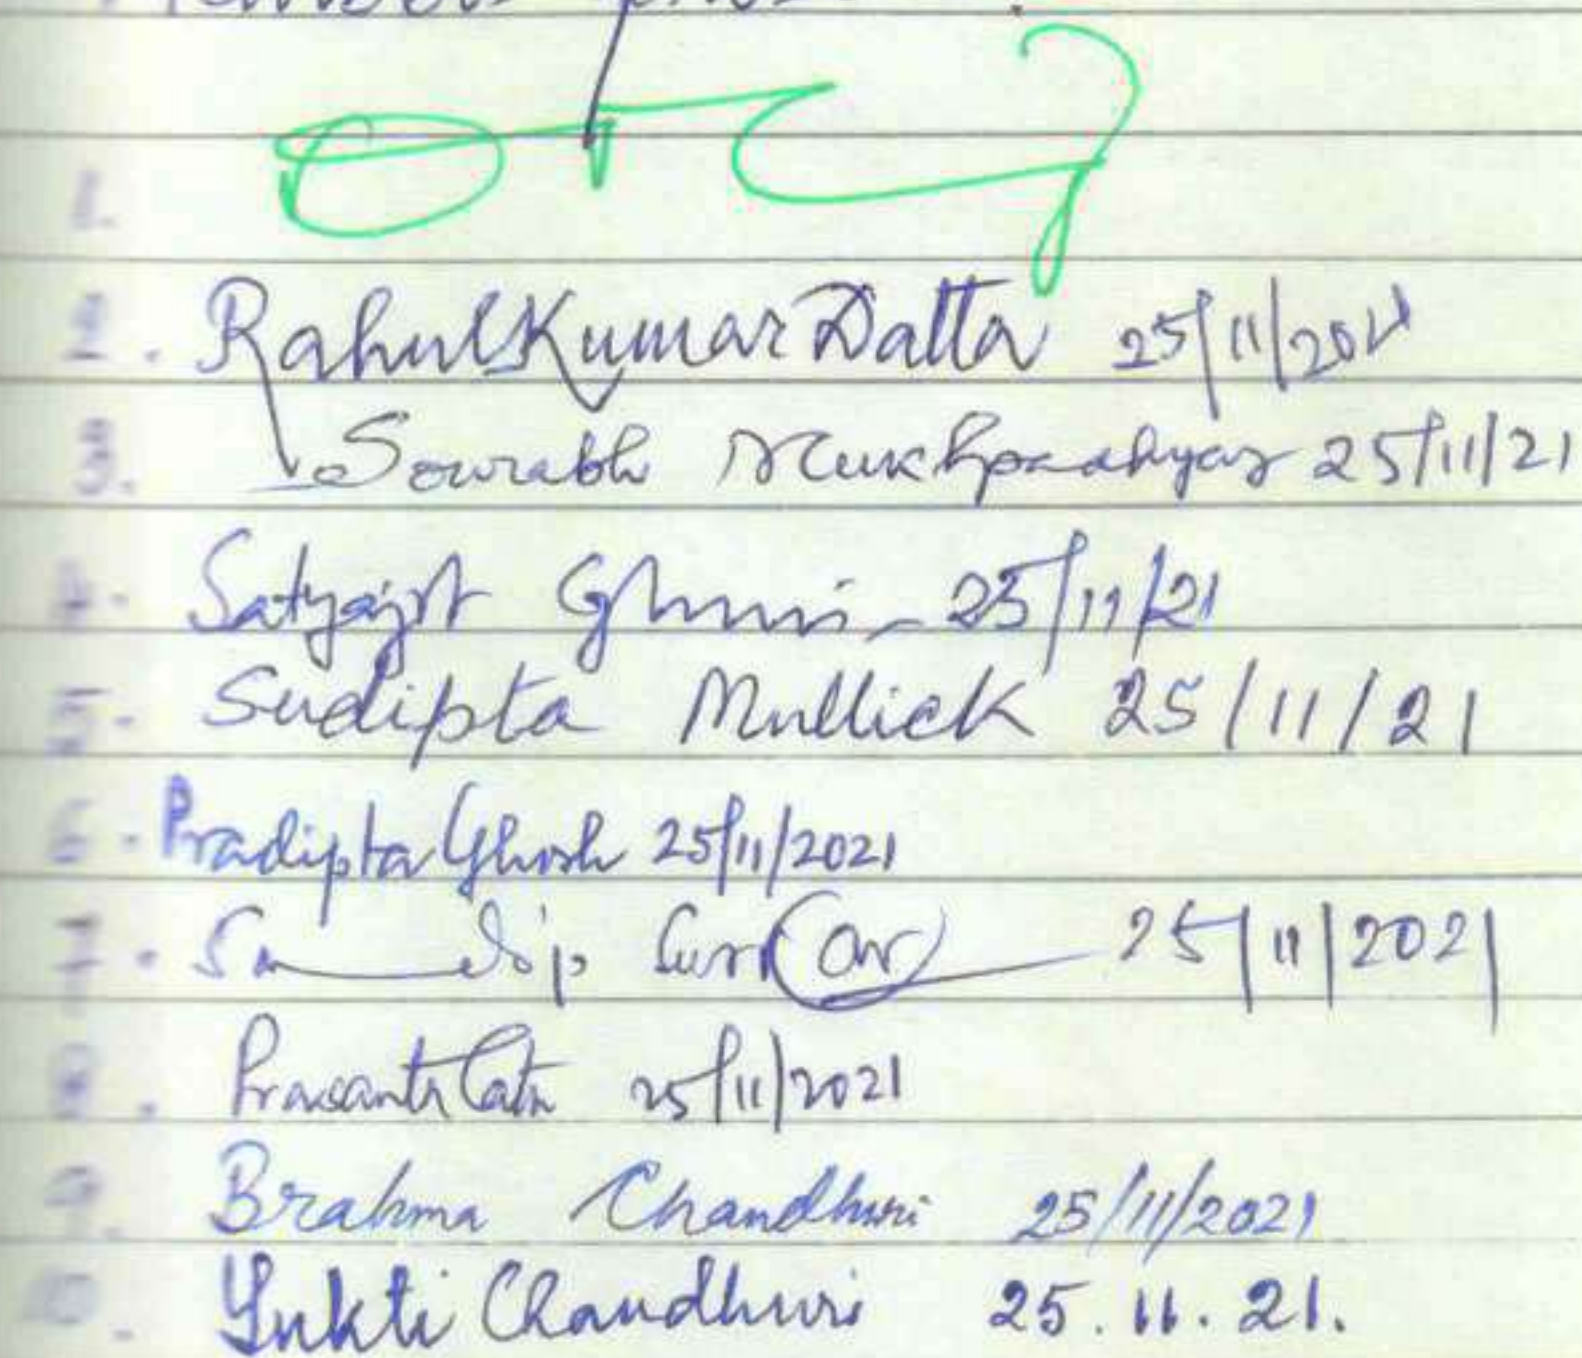 Members
2. Rahul Kumar Datta 25/11/2021
3. Sourabh Mukhopadhyay 25/11/21
4. Satyajit 25/11/21
5. Sudipta Mullick 25/11/21
6. Pradipta Ghosh 25/11/2021
7. Sandip Sarkar 25/11/2021
8. Prasanta 25/11/2021
9. Brahma Chaudhuri 25/11/2021
10. Yukti Chaudhuri 25.11.21.